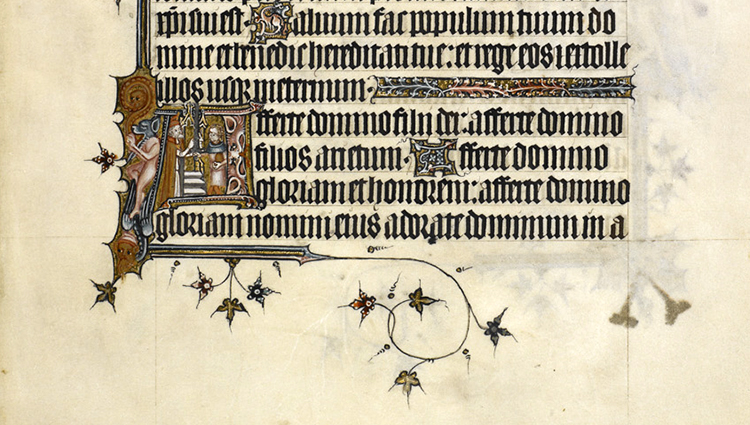 xp̄i sui est. Saluum fac populum tuum do
mine et benedic hereditati tue: et rege eos ⁊ extolle
illos usq; in eternum.
Afferte domino filii dei: afferte domino
filios arietum. Afferte domino
gloriam et honorem: afferte domino
gloriam nomini eius adorate dominum in a